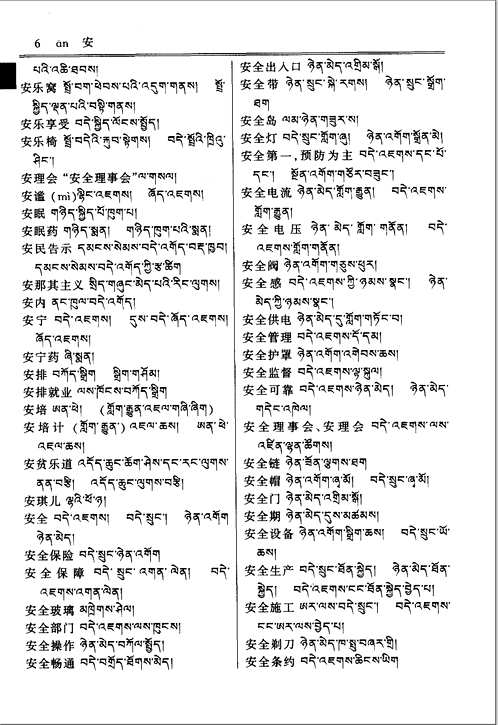 6 ān 安
པའི་འཆི་ཐབས།
安乐窝 སྤྲོ་བག་ཕེབས་པའི་འདུག་གནས། སྤྲོ་
སྐྱིད་ལྡན་པའི་བསྟི་གནས།
安乐享受 བདེ་སྐྱིད་ལོངས་སྤྱོད།
安乐椅 སྤྲོ་བདེའི་རྐུབ་སྟེགས། བདེ་སྤྲོའི་ཁྲིའུ་
ཤིང་།
安理会 “安全理事会”ལ་གསལ།
安谧 (mì) ལྷིང་འཇགས། ཞོད་འཇགས།
安眠 གཉིད་སྐྱིད་པོ་ཁུག་པ།
安眠药 གཉིད་སྨན། གཉིད་ཁུག་པའི་སྨན།
安民告示 དམངས་སེམས་བདེ་འགོད་བརྡ་ཁྱབ།
དམངས་སེམས་བདེ་འགོད་ཀྱི་རྩ་ཚིག
安那其主义 སྲིད་གཞུང་མེད་པའི་རིང་ལུགས།
安内 ནང་ཁུལ་བདེ་འགོད།
安宁 བདེ་འཇགས། དུས་བདེ་ཞོད་འཇགས།
ཞོད་འཇགས།
安宁药 ཞི་སྨན།
安排 བཀོད་སྒྲིག སྒྲིག་གཤོམ།
安排就业 ལས་ཁོངས་བཀོད་སྒྲིག
安培 ཨན་ཕེ། (གློག་རྒྱུན་འཇལ་གཞི་ཞིག)
安培计 (གློག་རྒྱུན་) འཇལ་ཆས། ཨན་ཕེ་
འཇལ་ཆས།
安贫乐道 འདོད་ཆུང་ཆོག་ཤེས་དང་རང་ལུགས་
ནན་བརྩི། འདོད་ཆུང་ལུགས་བརྩི།
安琪儿 ལྷའི་ཕོ་ཉ།
安全 བདེ་འཇགས། བདེ་སྲུང་། ཉེན་འགོག
ཉེན་མེད།
安全保险 བདེ་སྲུང་ཉེན་འགོག
安全保障 བདེ་སྲུང་འགན་ལེན། བདེ་
འཇགས་འགན་ལེན།
安全玻璃 མཁྲེགས་ཤེལ།
安全部门 བདེ་འཇགས་ལས་ཁུངས།
安全操作 ཉེན་མེད་བཀོལ་སྤྱོད།
安全畅通 བདེ་བགྲོད་ཐོགས་མེད།
安全出入口 ཉེན་མེད་འགྲིམ་སྒོ།
安全带 ཉེན་སྲུང་སྐེ་རགས། ཉེན་སྲུང་སྒྲོག་
ཐག
安全岛 ལམ་ཉེན་གཟུར་ས།
安全灯 བདེ་སྲུང་གློག་ཞུ། ཉེན་འགོག་སྒྲོན་མེ།
安全第一，预防为主 བདེ་འཇགས་དང་པོ་
དང་། སྔོན་འགོག་གཙོར་བཟུང་།
安全电流 ཉེན་མེད་གློག་རྒྱུན། བདེ་འཇགས་
གློག་རྒྱུན།
安全电压 ཉེན་མེད་གློག་གནོན། བདེ་
འཇགས་གློག་གནོན།
安全阀 ཉེན་འགོག་གཅུས་ཕུར།
安全感 བདེ་འཇགས་ཀྱི་ཉམས་སྣང་། ཉེན་
མེད་ཀྱི་ཉམས་སྣང་།
安全供电 ཉེན་མེད་དུ་གློག་གཏོང་བ།
安全管理 བདེ་འཇགས་དོ་དམ།
安全护罩 ཉེན་འགོག་འགེབས་ཆས།
安全监督 བདེ་འཇགས་ལྟ་སྐུལ།
安全可靠 བདེ་འཇགས་ཉེན་མེད། ཉེན་མེད་
གདེང་འཁེལ།
安全理事会、安理会 བདེ་འཇགས་ལས་
འཛིན་ལྷན་ཚོགས།
安全链 ཉེན་ཐོན་ལྕགས་ཐག
安全帽 ཉེན་འགོག་ཞྭ་མོ། བདེ་སྲུང་ཞྭ་མོ།
安全门 ཉེན་མེད་འགྲིམ་སྒོ།
安全期 ཉེན་མེད་དུས་མཚམས།
安全设备 ཉེན་འགོག་སྒྲིག་ཆས། བདེ་སྲུང་ཡོ་
ཆས།
安全生产 བདེ་སྲུང་ཐོན་སྐྱེད། ཉེན་མེད་ཐོན་
སྐྱེད། བདེ་འཇགས་ངང་ཐོན་སྐྱེད་བྱེད་པ།
安全施工 ཨར་ལས་བདེ་སྲུང་། བདེ་འཇགས་
ངང་ཨར་ལས་བྱེད་པ།
安全剃刀 ཉེན་མེད་ཁ་སྤུ་བཞར་གྲི།
安全条约 བདེ་འཇགས་ཆིངས་ཡིག